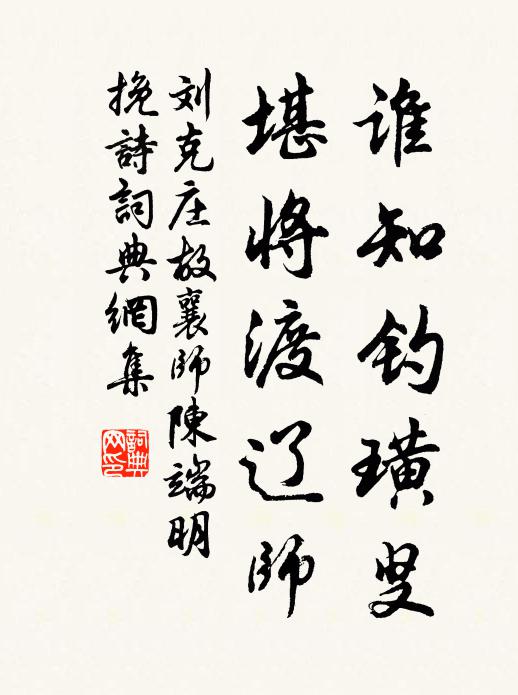 谁知钓璜叟
堪将渡辽师
刘克庄故襄师陳端明
挽詩詞典網集
詞典
网印